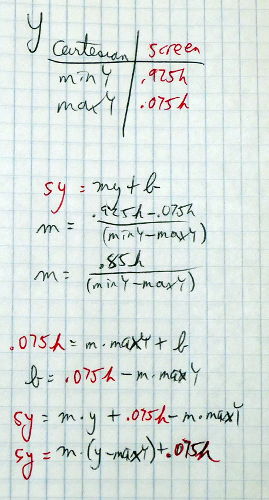 Y
Cartesian screen
minY .925h
maxY .075h
sy = my + b
m = .925h - .075h
(minY - maxY)
m = .85h
(minY - maxY)
.075h = m · maxY + b
b = .075h - m · maxY
sy = m · y + .075h - m · maxY
sy = m · (y - maxY) + .075h